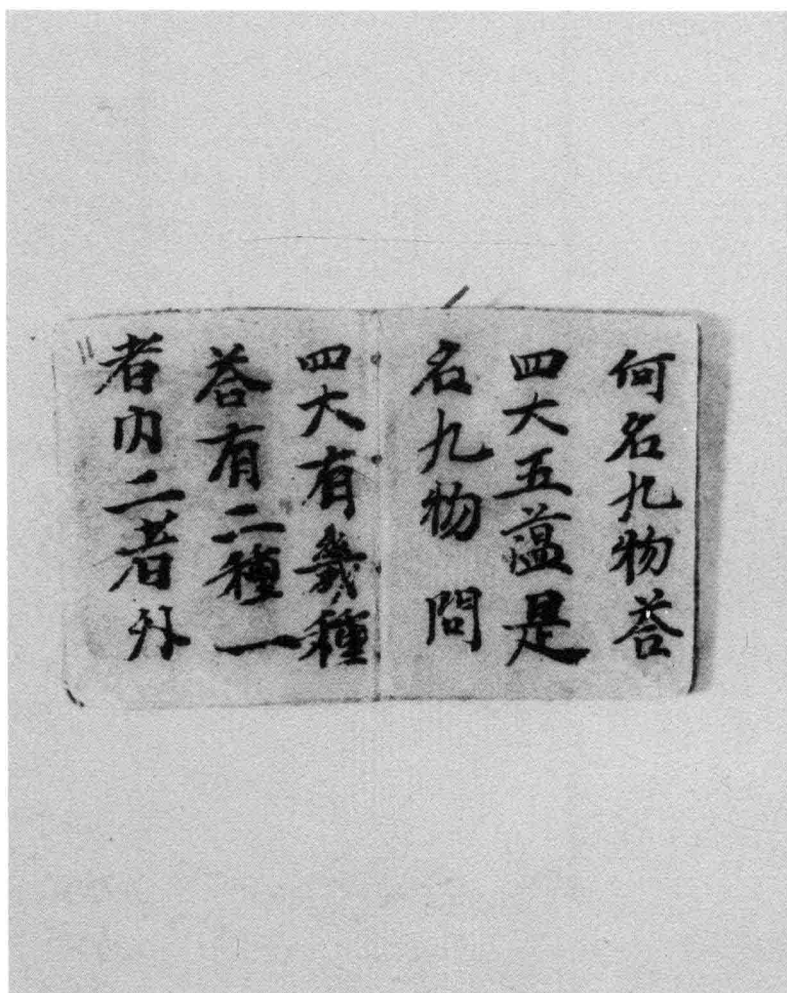 何名九物荅
四大五蕰是
名九物　問
四大有幾種
荅有二種一
者内二者外